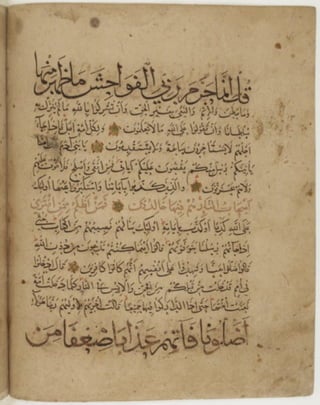 قل انما حرم ربي الفواحش ما ظهر منها
وما بطن والاثم والبغي بغير الحق وان تشركوا بالله ما لم ينزل به
سلطانا وان تقولوا على الله ما لا تعلمون ولكل امة اجل فاذا جاء
اجلهم لا يستاخرون ساعة ولا يستقدمون يا بني ادم اما
ياتينكم رسل منكم يقصون عليكم اياتي فمن اتقى واصلح فلا خوف عليهم
ولا هم يحزنون والذين كذبوا باياتنا واستكبروا عنها اولئك
اصحاب النار هم فيها خالدون فمن اظلم ممن افترى
على الله كذبا او كذب باياته اولئك ينالهم نصيبهم من الكتاب حتى
اذا جاءتهم رسلنا يتوفونهم قالوا اين ما كنتم تدعون من دون الله
قالوا ضلوا عنا وشهدوا على انفسهم انهم كانوا كافرين قال ادخلوا
في امم قد خلت من قبلكم من الجن والانس في النار كلما دخلت امة
لعنت اختها حتى اذا اداركوا فيها جميعا قالت اخراهم لاولاهم ربنا هؤلاء
اضلونا فاتهم عذابا ضعفا من